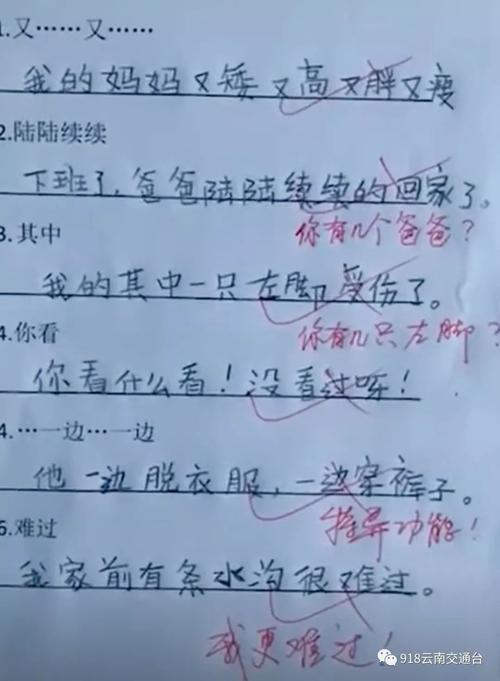 1.又……又……
我的妈妈又矮又高又胖又瘦
2.陆陆续续
下班了，爸爸陆陆续续的回家了。
你有几个爸爸？
3.其中
我的其中一只左脚受伤了。
你有几只左脚？
4.你看
你看什么看！没看过呀！
4.…一边…一边
他一边脱衣服，一边穿裤子。
特异功能！
5.难过
我家前有条水沟很难过。
我更难过！
918云南交通台